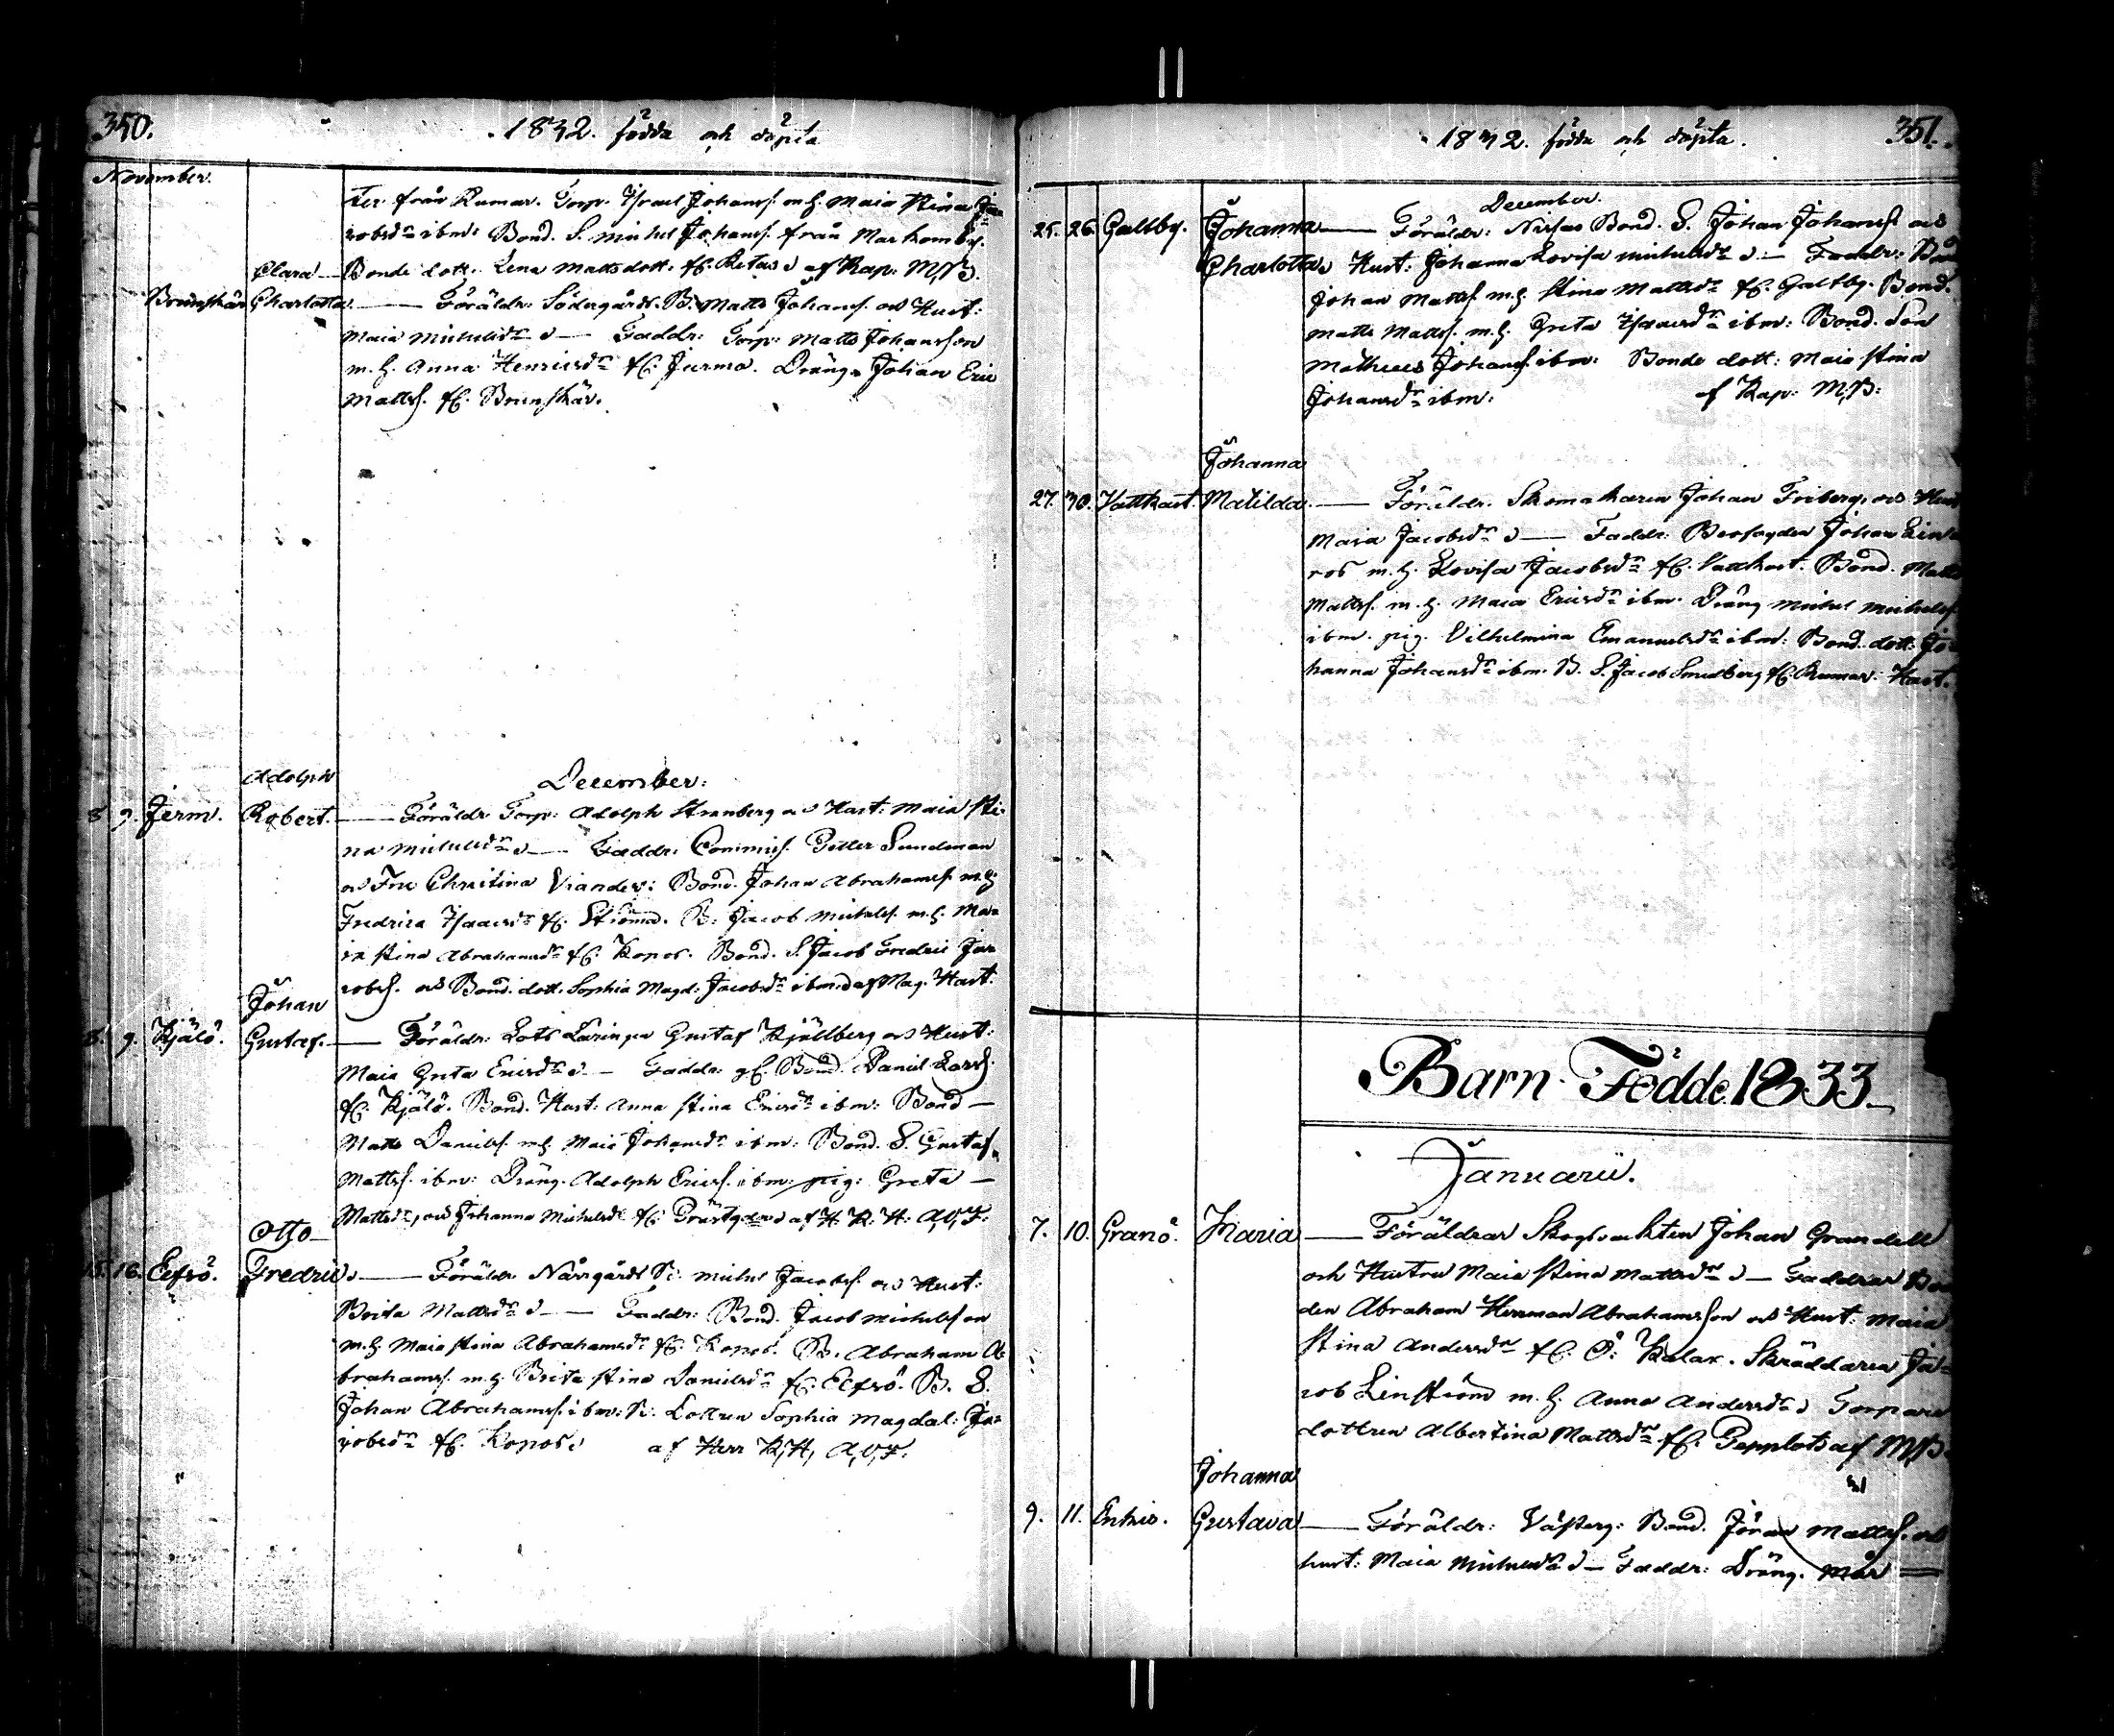 350.
1832. födda och döpta
November.
ter från Rumar. Torp. Israel Johanss. m.h. Maia Stina Ja=
cobsdr ibm: Bond. S. Michel Johanss. från Markomby.
Clara Bonde dott. Lena Mattsdott. fr. Retais af Kap. M,B.
Brunskär Charlotta. Föräldr: Södergårds. B. Matts Johanss. och Hust:
Maia Michelsdr Faddr: Torp: Matts Johansson
m.h. Anna Henricsdr fr. Jurmo. Dräng. Johan Eric
Mattss. fr. Brunskär.
December:
Adolph
8. 9. Jerm. Robert. Föräldr. Torp: Adolph Strenberg och Hust: Maia Sti=
na Michelsdr Faddr: Commiss. Petter Sundman
och Fru Christina Viander: Bond. Johan Abrahamss. m.h.
Fredrica Isaacsdr fr. Ströma. B: Jacob Michelss. m.h. Ma=
ia Stina Abrahamsdr fr. Konos. Bond. S. Jacob Fredric Ja=
cobss. och Bond. dott. Sophia Magd: Jacobsdr ibm: af Mag. Hast.
Johan
8. 9. Kjälö. Gustaf. Föräldr: Lots Läringen Gustaf Kjällberg och Hust:
Maia Greta Ericsdr Faddr: gl. Bond. Daniel Larss.
fr. Kjälö. Bond. Hust: Anna Stina Ericsdr ibm: Bond
Matts Danielss. m.h. Maia Johansdr ibm: Bond. S. Gustaf
Mattss. ibm: Dräng. Adolph Ericss. ibm: pig: Greta
Mattsdr, och Johanna Michelsdr fr. Prästgården af H. K. H: A,V,F.
Otto
15. 16. Eefsö. Fredric. Föräldr: Norrgårds B: Michel Jacobss. och Hust:
Brita Mattsdr Faddr: Bond. Jacob Michelsson
m.h Maia Stina Abrahamsdr fr. Konos. B. Abraham A=
brahamss. m.h. Brita Stina Danielsdr fr. Eefsö. B. S.
Johan Abrahamss. ibm: B: Dottren Sophia Magdal: Ja=
cobsdr fr. Konos. af Herr K,H, A,V,F.
1832. födda och döpta.
351.
December.
25. 26. Galtby. Johanna Föräldr: Bond. S. Johan Johanss och
Charlotta. Hust: Johanna Lovisa Michelsdr Faddr: Bon
Johan Mattss. m.h. Stina Mattsdr fr. Galtby. Bond.
Matts Mattss. m.h. Greta Isaacsdr ibm: Bond. Son
Mathias Johanss. ibm: Bonde dott: Maia Stina
Johansdr ibm: af Kap: M,B:
Johanna
27. 30. Vattkast. Matilda. Föräldr. Skomakaren Johan Friberg och Hust
Maia Jacobsdr Faddr: Johan Lind
ros m.h. Lovisa Jacobsdr fr. Vattkast. Bond. Matts
Mattss. m.h. Maia Ericsdr ibm. Dräng Michel Michelss.
ibm. pig. Vilhelmina Emanuelsdr ibm: Bond. dott: Jo=
hanna Johansdr ibm. B. S. Jacob Smedberg fr. Rumar. Hast.
Barn Födde 1833
Januarii.
7. 10. Granö. Maria Föräldrar Skogvackten Johan Grandell
och Hustru Maia Stina Mattsdr Faddrar Bon
den Abraham Herrman Abrahamsson och Hust: Maia
Stina Andersdr fr. Ö: Kalax. Skräddaren Ja=
cob Linström m.h. Anna Andersdr Torpare
dottren Albertina Mattsdr fr. Pepplot af M,B.
Johanna
9. 11. Enkis. Gustava Föräldr: Västerg: Bond. Jöran Mattss. och
hust: Maia Michelsdr Faddr: Dräng. Mår